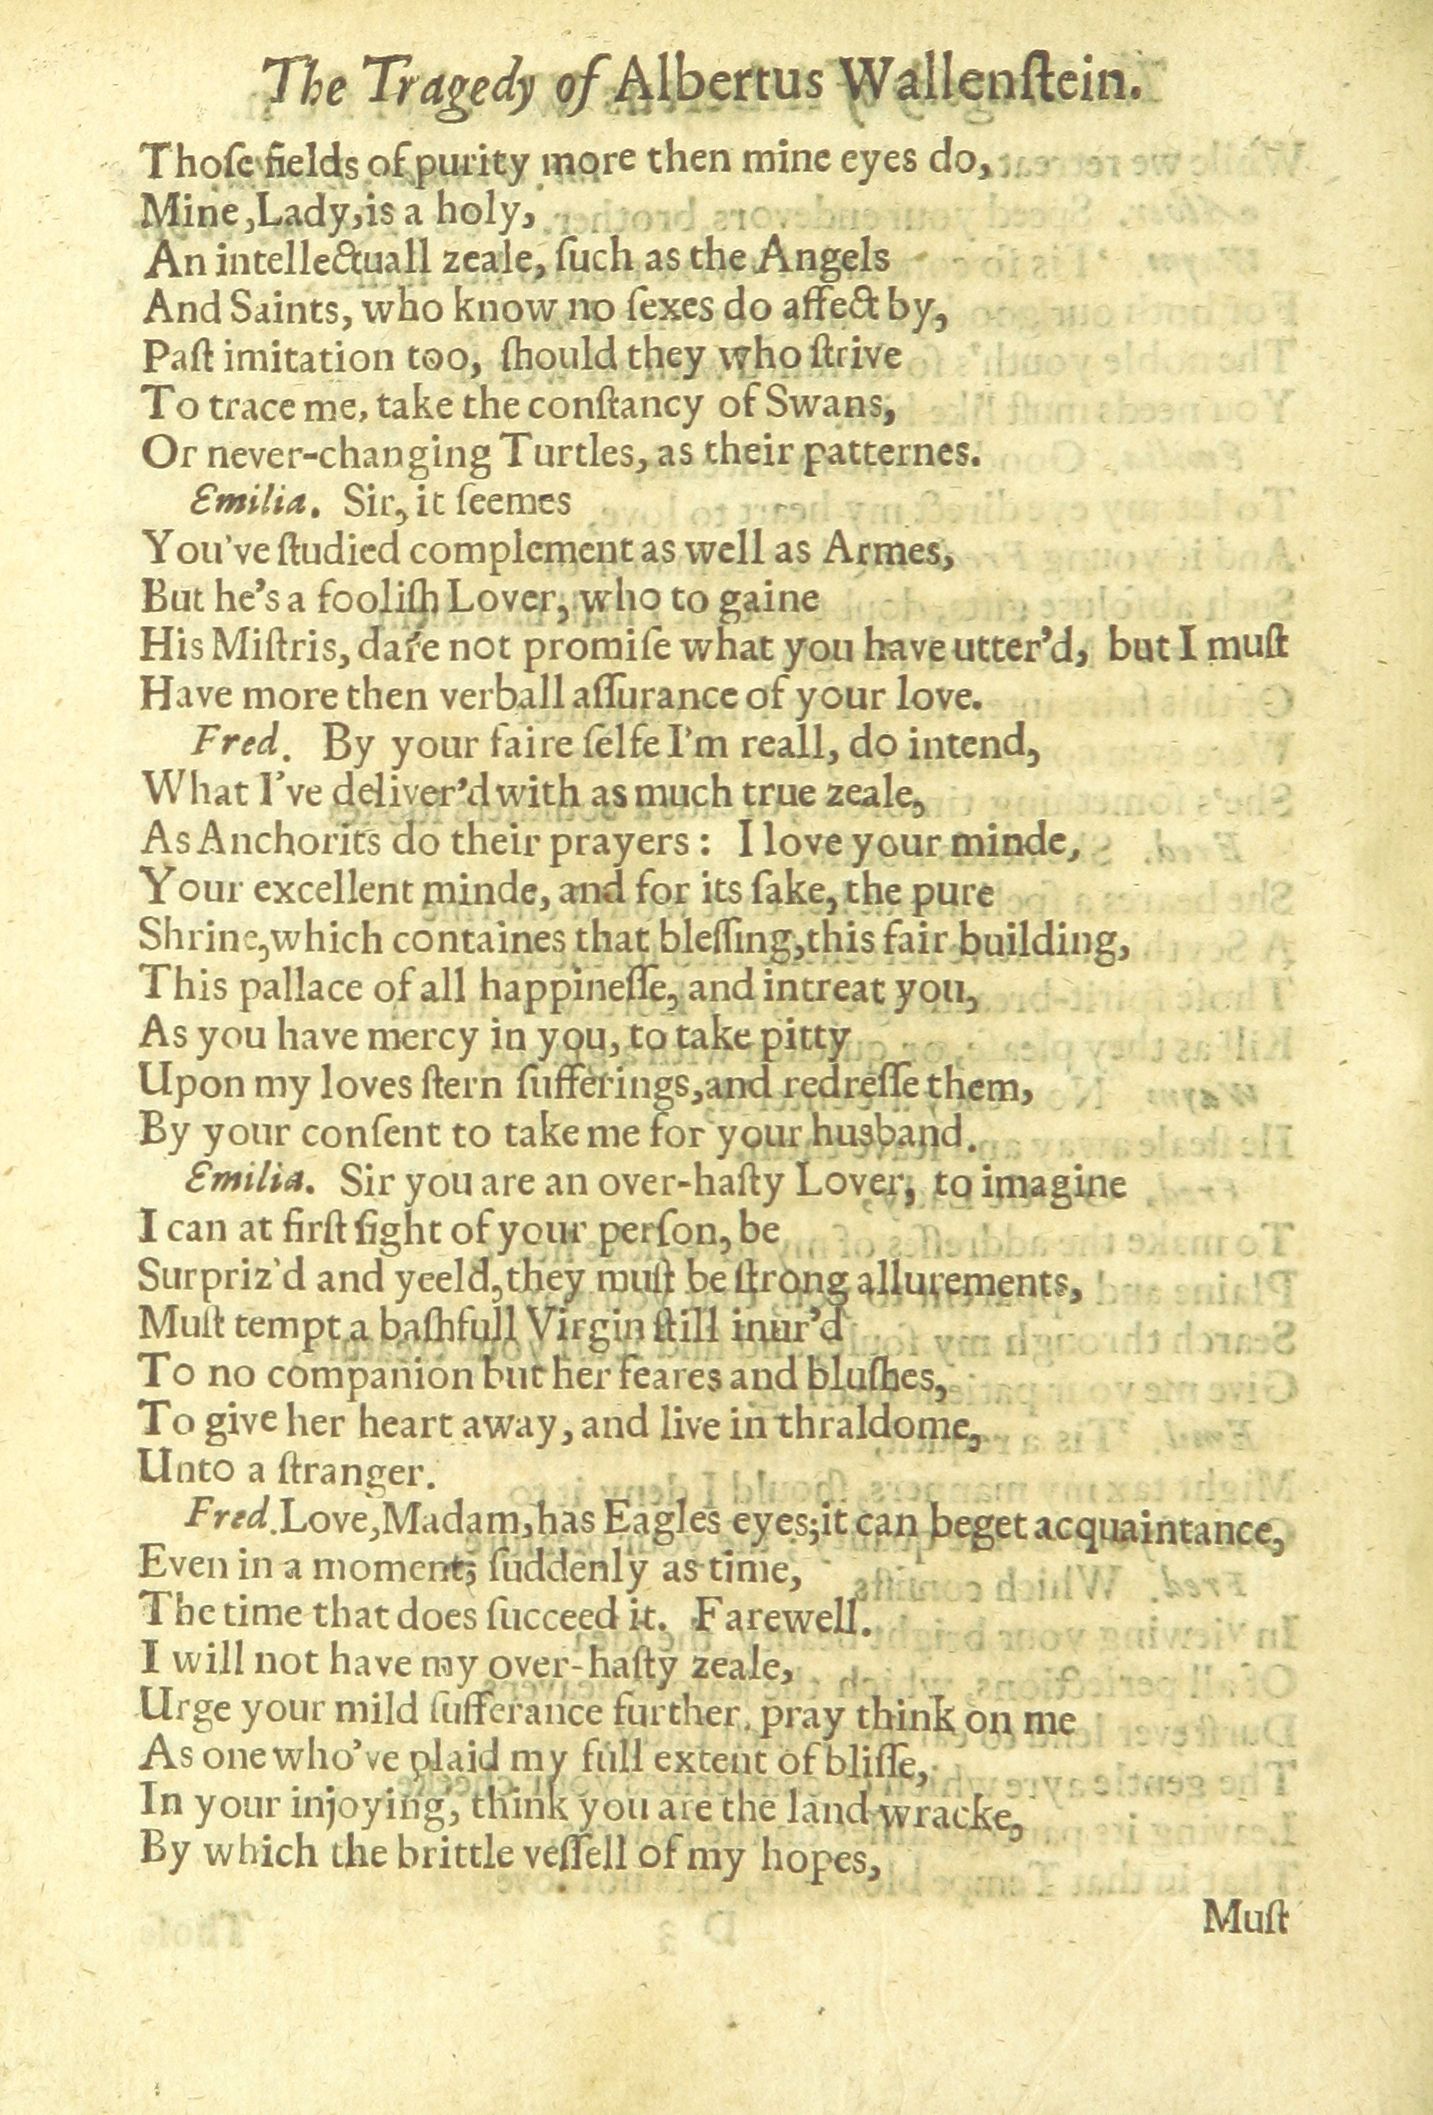 The Tragedy of Albertus Wallenſtein.
Thoſe fields of purity more then mine eyes do,
Mine, Lady, is a holy,
An intellectuall zeale, ſuch as the Angels
And Saints, who know no ſexes do affect by,
Paſt imitation too, ſhould they who ſtrive
To trace me, take the conſtancy of Swans,
Or never-changing Turtles, as their patternes.
Emilia. Sir, it ſeemes
You've ſtudied complement as well as Armes,
But he's a fooliſh Lover, who to gaine
His Miſtris, dare not promiſe what you have utter'd, but I muſt
Have more then verball aſſurance of your love.
Fred. By your faire ſelfe I'm reall, do intend,
What I've deliver'd with as much true zeale,
As Anchorits do their prayers: I love your minde,
Your excellent minde, and for its ſake, the pure
Shrine, which containes that bleſſing, this fair building,
This pallace of all happineſſe, and intreat you,
As you have mercy in you, to take pitty
Upon my loves ſtern ſufferings, and redreſſe them,
By your conſent to take me for your husband.
Emilia. Sir you are an over-haſty Lover, to imagine
I can at firſt ſight of your perſon, be
Surpriz'd and yeeld, they muſt be ſtrong allurements,
Muſt tempt a baſhfull Virgin ſtill inur'd
To no companion but her feares and bluſhes,
To give her heart away, and live in thraldome,
Unto a ſtranger.
Fred. Love, Madam, has Eagles eyes; it can beget acquaintance,
Even in a moment; ſuddenly as time,
The time that does ſucceed it. Farewell.
I will not have my over-haſty zeale,
Urge your mild ſufferance further, pray think on me
As one who've plaid my full extent of bliſſe,
In your injoying, think you are the land wracke,
By which the brittle veſſell of my hopes,
Muſt